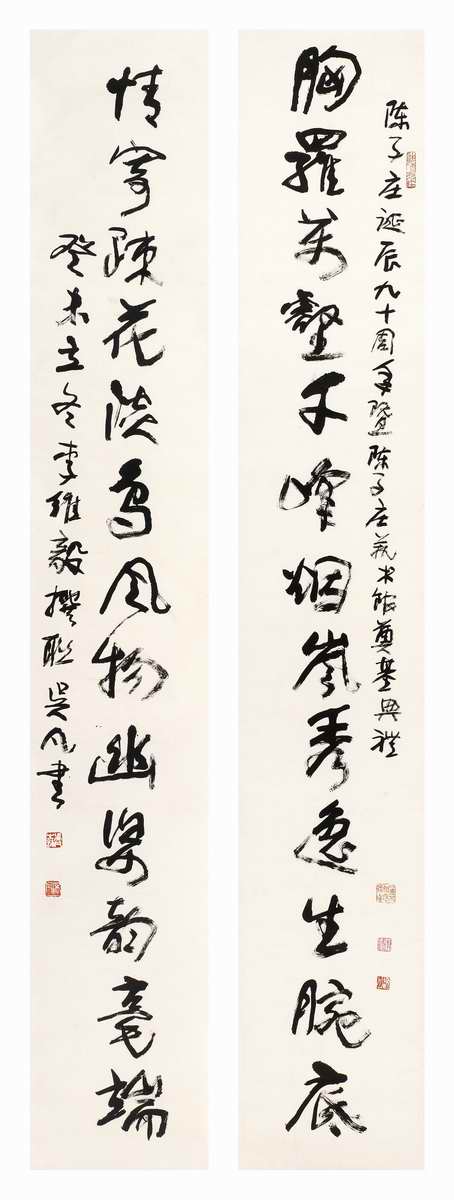 陈子庄诞辰九十周年暨陈子庄艺术馆奠基典禮
胸羅萬壑千峰烟嵐秀逸生腕底
情寄疎花淡鸟风物幽姿韵毫端
癸未立冬李维毅撰联吴凡书